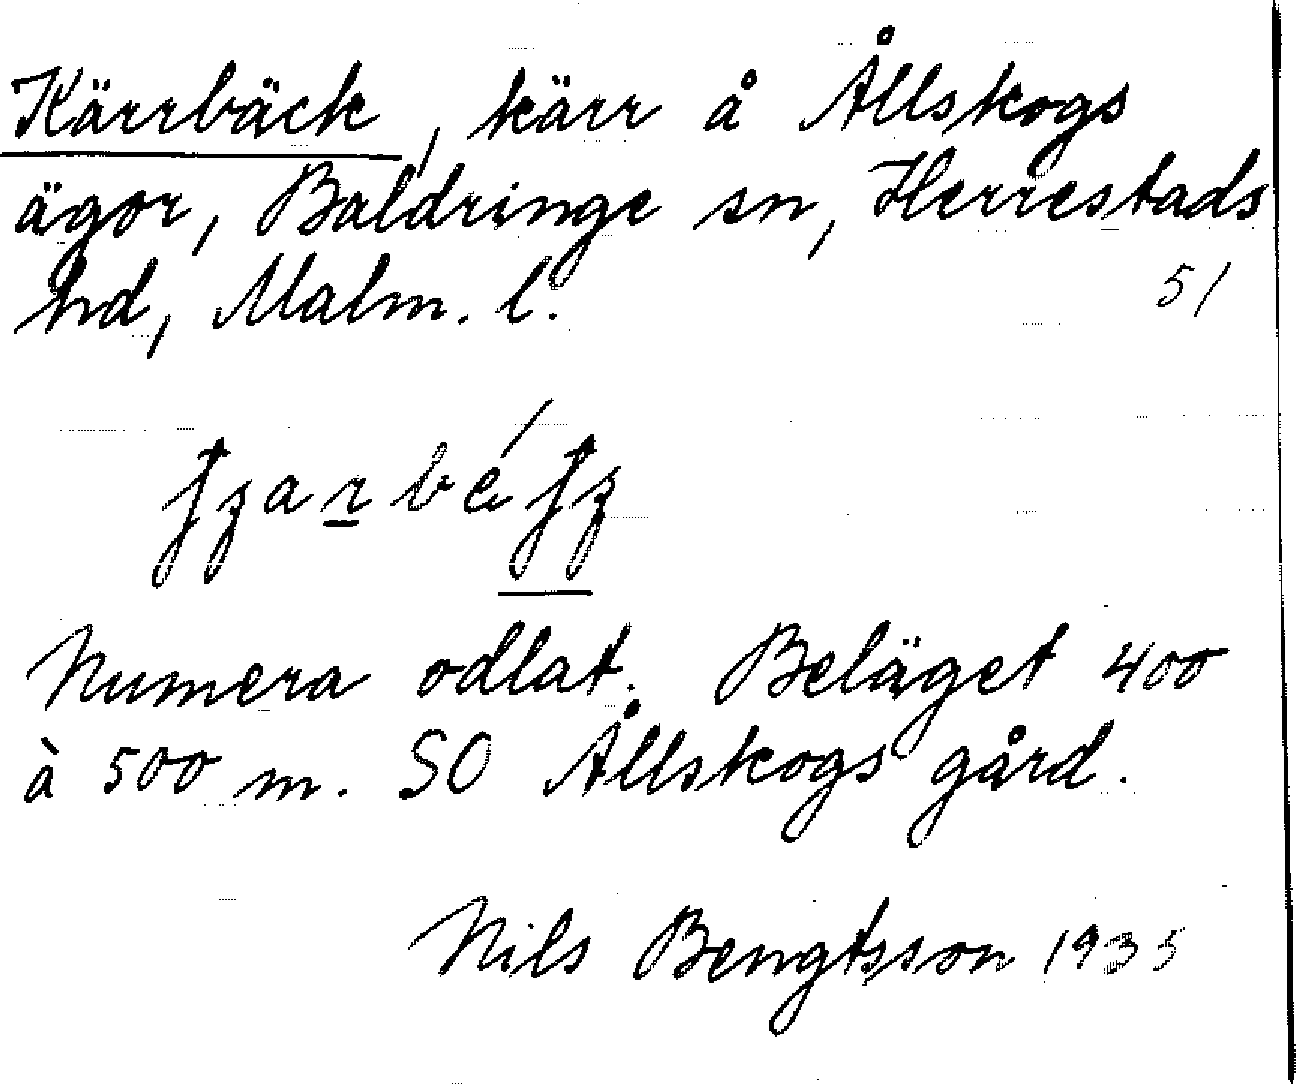 Kärrbäck, kärr å Ållskogs
ägor, Baldringe sn, Herrestads
hd, Malm. l.
51
Numera odlat. Beläget 400
à 500 m. SO Ållskogs gård.
Nils Bengtsson 1935